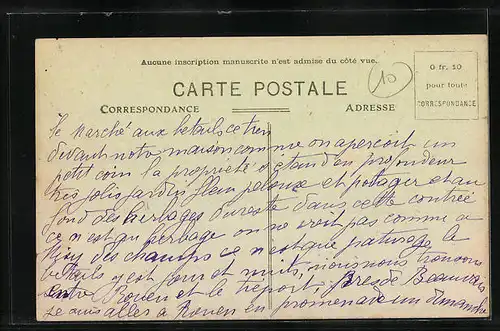 Aucune inscription manuscrite n'est admise du côté vue.
CARTE POSTALE
10
0 fr. 10
pour toute
CORRESPONDANCE
CORRESPONDANCE
ADRESSE
le Marché aux betails ce tien
devant notre maison comme on apercoit un
petit coin la propriété s'etand en profondeur
tres jolis jardin fleur pelouse et potager et au
fond des herbages du reste dans cette contrée
ce n'est qu'herbage on ne voit pas comme a
des champs ce n'est que paturage le
betails y est jour et nuit, nous nous trouvons
entre Rouen et le treport, pres de Beauvais
je suis alles a Rouen en promenade un dimanche